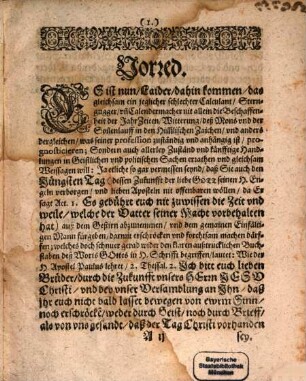 (1.)
Vorred.
ES ist nun / Laider / dahin kommen / das
gleichsam ein jeglicher schlechter Calculant / Stern
gugger / uñ Calendermacher nit allein die Beschaffen-
heit der Jahr Zeiten / Witterung / deß Mons und der
Sonenlauff in den Him̃lischen Zaichen / und anders
dergleichen / was seiner profession zuständig und anhängig ist / pro-
gnosticieren: Sondern auch allerlay Zuständ und künfftige Hand-
lungen in Geistlichen und politischen Sachen errathen und gleichsam
Weissagen will: Ja etliche so gar vermessen seynd / daß Sie auch den
Jüngsten Tag / dessen Zukunfft der liebe Gott seinen H. En-
geln verborgen / und lieben Aposteln nit offenbaren wöllen / da Er
sagt Act. 1. Es gebührt euch nit zuwissen die Zeit und
weile / welche der Vatter seiner Macht vorbehalten
hat / auß dem Gestirn abzunemmen / und dem gemeinen Einfälti-
gen Mann fürgeben / darmit erschröcken und forchtsam machen dür-
fen / welches doch schnur gerad wider den klaren austrucklichen Buch-
staben des Worts GOttes in H. Schrifft begriffen / lautet: Wie des
H. Apostel Paulus lehret / 2. Thessal. 2. Ich bitt euch lieben
Brüder / durch die Zukunfft unsers HErrn JESU
Christi / und der unser Versamblung an Ihn / daß
jhr euch nicht bald lasset bewegen von ewrm Sinn /
noch erschröckē / weder durch Geist / noch durch Brieff /
als von uns gesande / daß der Tag Christi vorhanden
A ij sey.
Bayerische
Staatsbibliothek
München